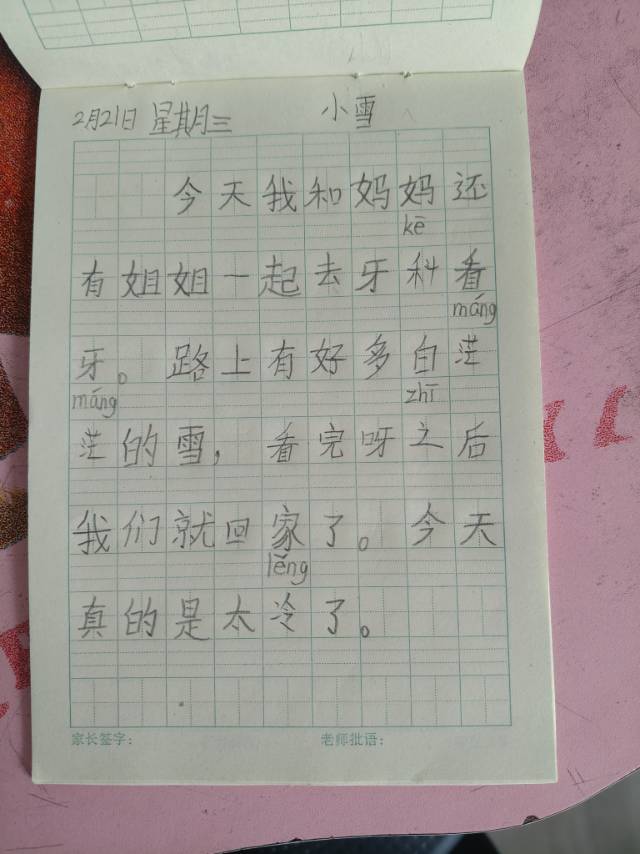 2月21日 星期三 小雪
今天我和妈妈还
kē
有姐姐一起去牙科看
máng
牙。路上有好多白茫
máng zhī
茫的雪，看完呀之后
我们就回家了。今天
lěng
真的是太冷了。
家长签字： 老师批语：